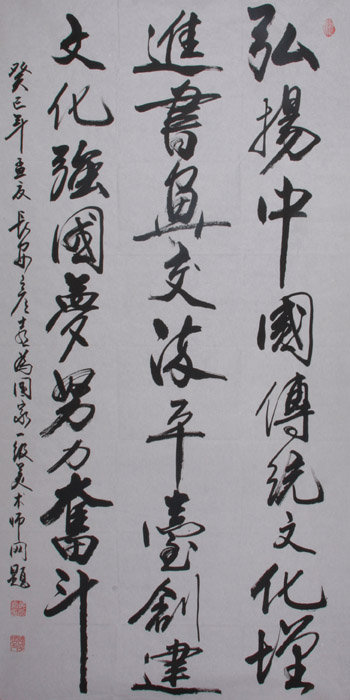 弘揚中國傳統文化增
進書畫交流平臺創建
文化強國夢努力奮斗
癸巳年孟夏長安為国家一级美术师网題